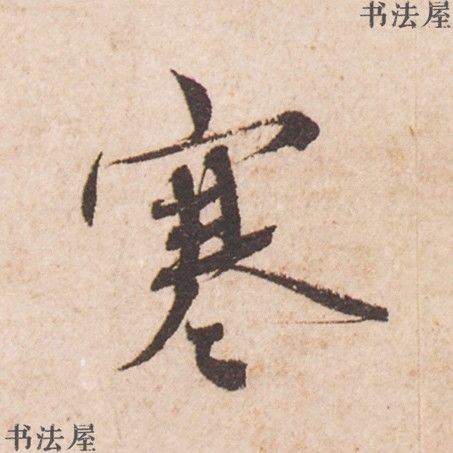 书法屋
寒
书法屋